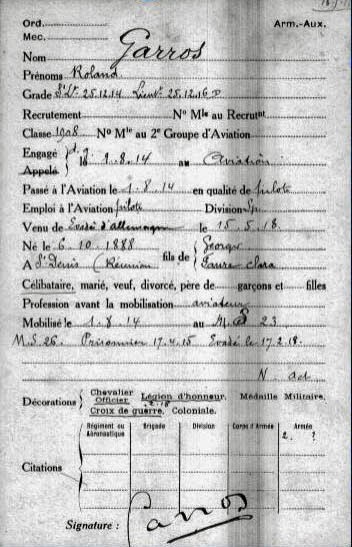 Ord.
Arm.-Aux.
Mec.
Nom Garros
Prénoms Roland
Grade Sᵗ Lᵗ 25.12.14 Lieutᵗ 25.12.16
Recrutement Nº Mˡᵉ au Recrutᵗ
Classe 1908 Nº Mˡᵉ au 2ᵉ Groupe d'Aviation
Engagé
Appelé le 1.8.14 au Aviation
Passé à l'Aviation le 1.8.14 en qualité de pilote
Emploi à l'Aviation pilote Division
Venu de Evadé d'allemagne le 15.5.18.
Né le 6.10.1888 fils de Georges
A Sᵗ Denis (Réunion Faure Clara
Célibataire, marié, veuf, divorcé, père de garçons et filles
Profession avant la mobilisation aviateur
Mobilisé le 1.8.14 au M.S 23
M.S. 26. Prisonnier 17.4.15 Evadé le 17.2.18.
N. act
Décorations Chevalier Officier Légion d'honneur, Médaille Militaire,
Croix de guerre, Coloniale.
Régiment ou Aéronautique Brigade Division Corps d'Armée Armée
2. ?
Citations
Signature : Garros